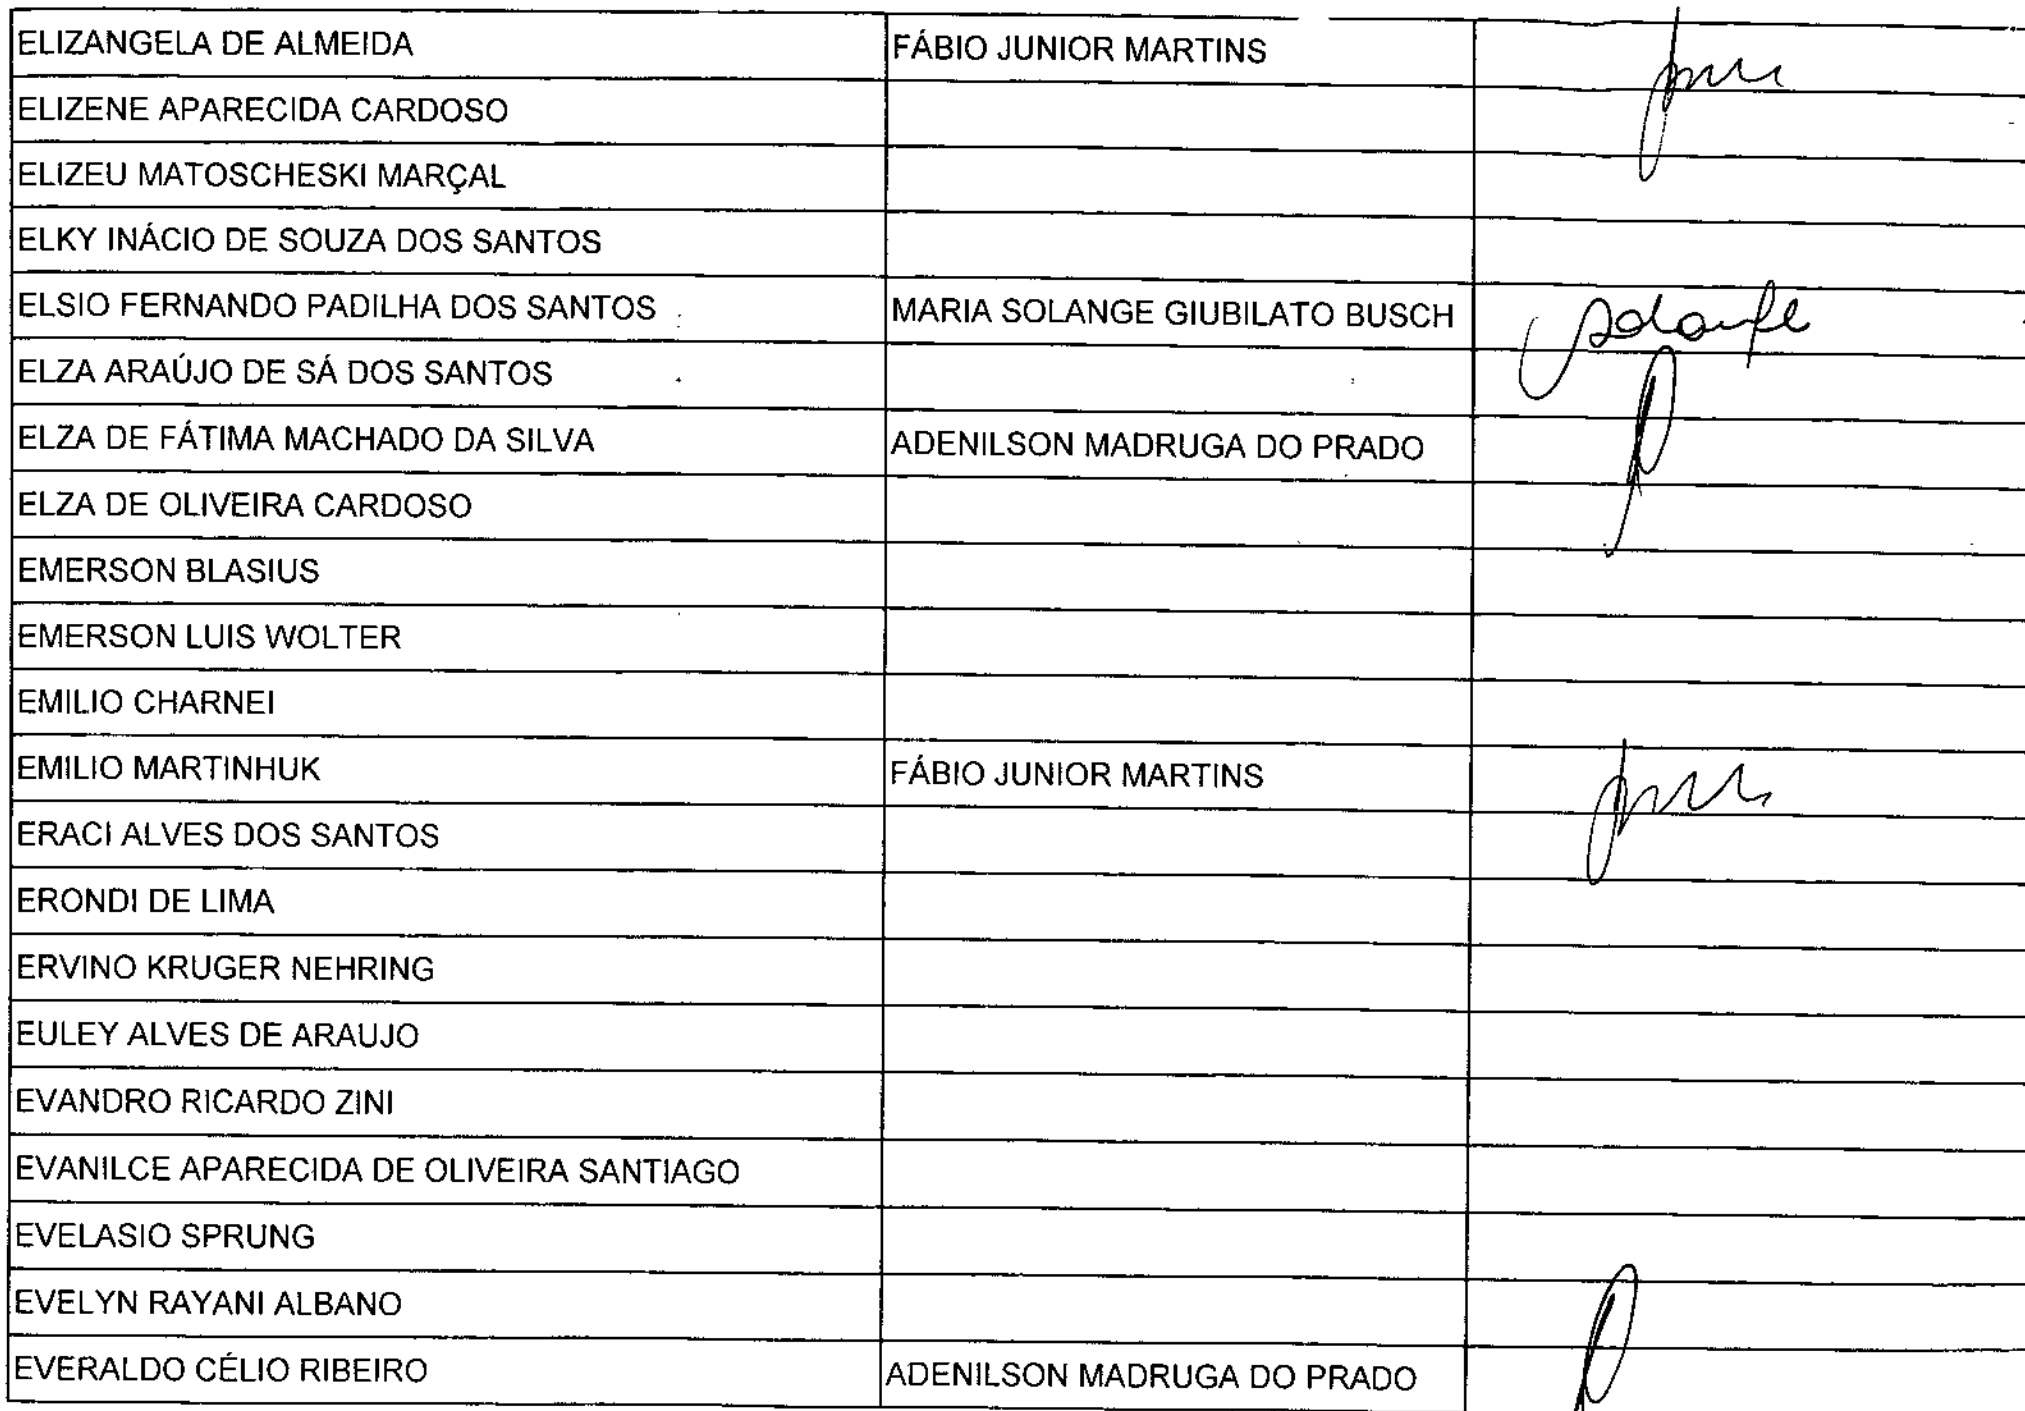 ELIZANGELA DE ALMEIDA FÁBIO JUNIOR MARTINS
ELIZENE APARECIDA CARDOSO
ELIZEU MATOSCHESKI MARÇAL
ELKY INÁCIO DE SOUZA DOS SANTOS
ELSIO FERNANDO PADILHA DOS SANTOS MARIA SOLANGE GIUBILATO BUSCH Solange
ELZA ARAÚJO DE SÁ DOS SANTOS
ELZA DE FÁTIMA MACHADO DA SILVA ADENILSON MADRUGA DO PRADO
ELZA DE OLIVEIRA CARDOSO
EMERSON BLASIUS
EMERSON LUIS WOLTER
EMILIO CHARNEI
EMILIO MARTINHUK FÁBIO JUNIOR MARTINS
ERACI ALVES DOS SANTOS
ERONDI DE LIMA
ERVINO KRUGER NEHRING
EULEY ALVES DE ARAUJO
EVANDRO RICARDO ZINI
EVANILCE APARECIDA DE OLIVEIRA SANTIAGO
EVELASIO SPRUNG
EVELYN RAYANI ALBANO
EVERALDO CÉLIO RIBEIRO ADENILSON MADRUGA DO PRADO